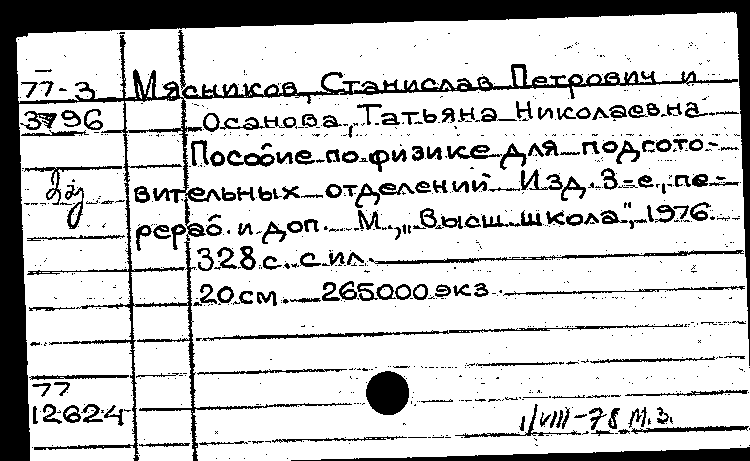 77-3 Мясников, Станислав Петрович и
3796 Осанова, Татьяна Николаевна
Пособие по физике для подгото-
вительных отделений Изд. 3-е, пе-
рераб. и доп. М., „Высш. школа", 1976.
328 с. с ил.
20 см. 265000 экз.
77
12624
1/VIII-78 М.З.